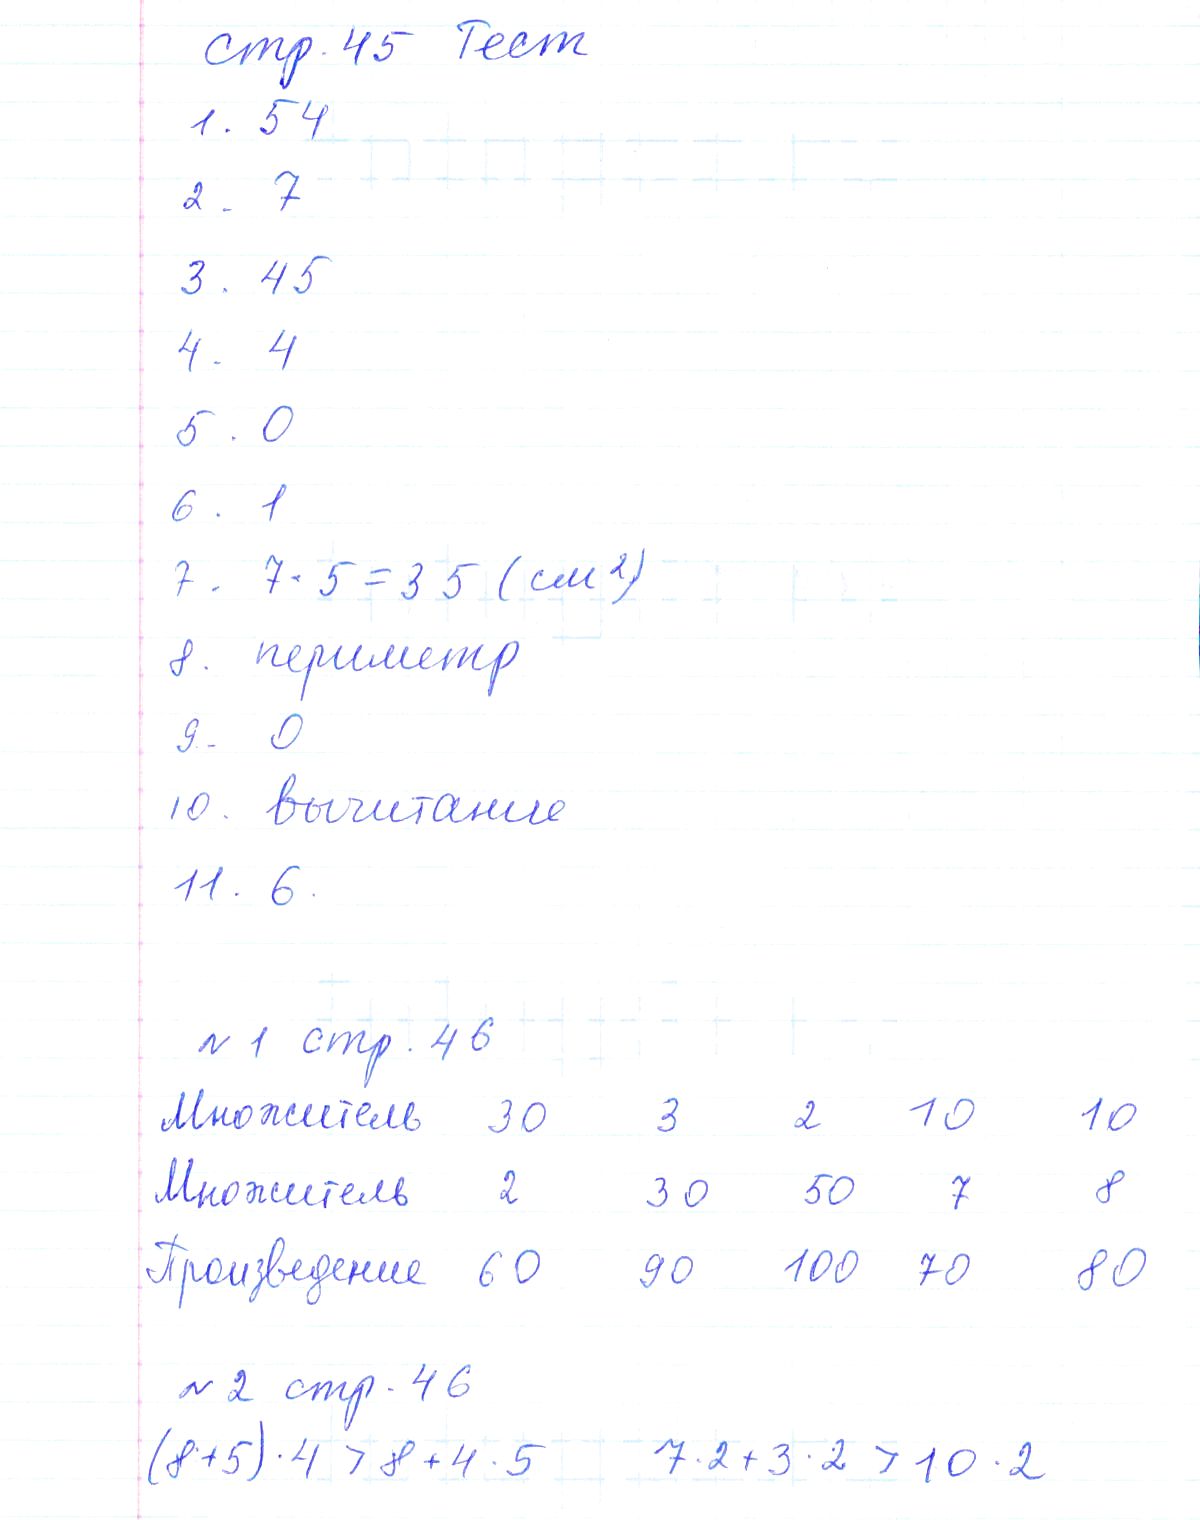 стр. 45 Тест
1. 54
2. 7
3. 45
4. 4
5. 0
6. 1
7. 7·5=35 (см²)
8. периметр
9. 0
10. вычитание
11. 6.
№1 стр. 46
Множитель 30 3 2 10 10
Множитель 2 30 50 7 8
Произведение 60 90 100 70 80
№2 стр. 46
(8+5)·4 > 8+4·5 7·2+3·2 > 10·2